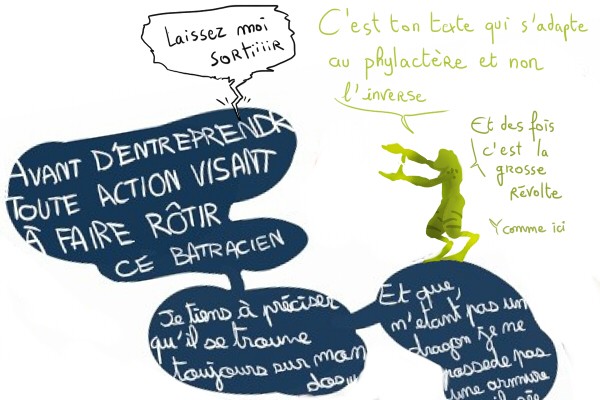 Laissez moi
SORTiiiiR
C'est ton texte qui s'adapte
au phylactère et non
l'inverse
Et des fois
c'est la
grosse
Révolte
comme ici
AVANT D'ENTREPRENDR
TOUTE ACTION VISANT
À FAIRE RÔTIR
CE BATRACIEN
Je tiens à préciser
qu'il se trouve
toujours sur mon
dos...
Et que,
n'étant pas un
dragon je ne
possède pas
une armure